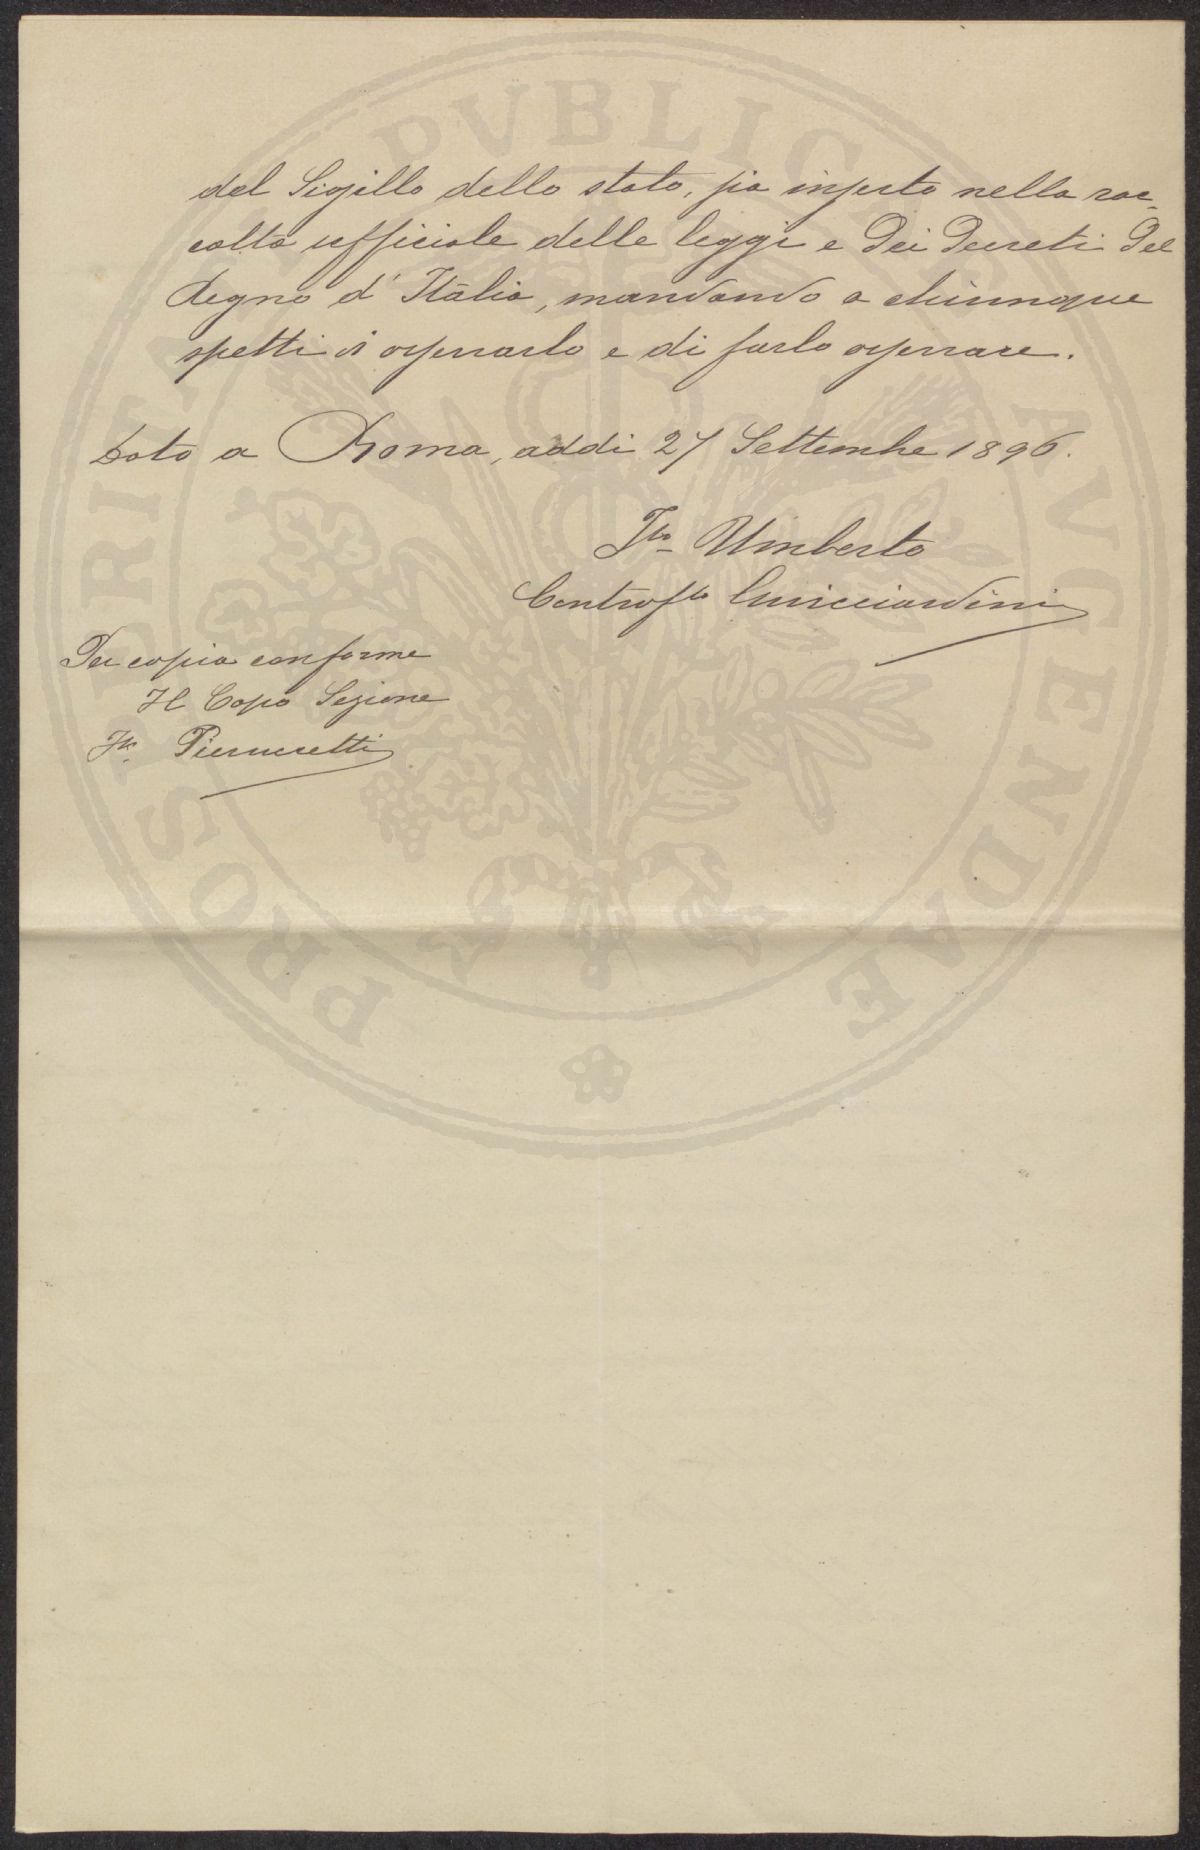 del Sigillo dello stato, sia inserto nella rac-
colta ufficiale delle leggi e dei decreti del
Regno d'Italia, mandando a chiunque
spetti di osservarlo e di farlo osservare.
Dato a Roma, addì 27 Settembre 1896.
Fto Umberto
Controfto Guicciardini
Per copia conforme
Il Capo Sezione
Fto Pierucetti
PROSPERITATI PVBLICAE AVGENDAE